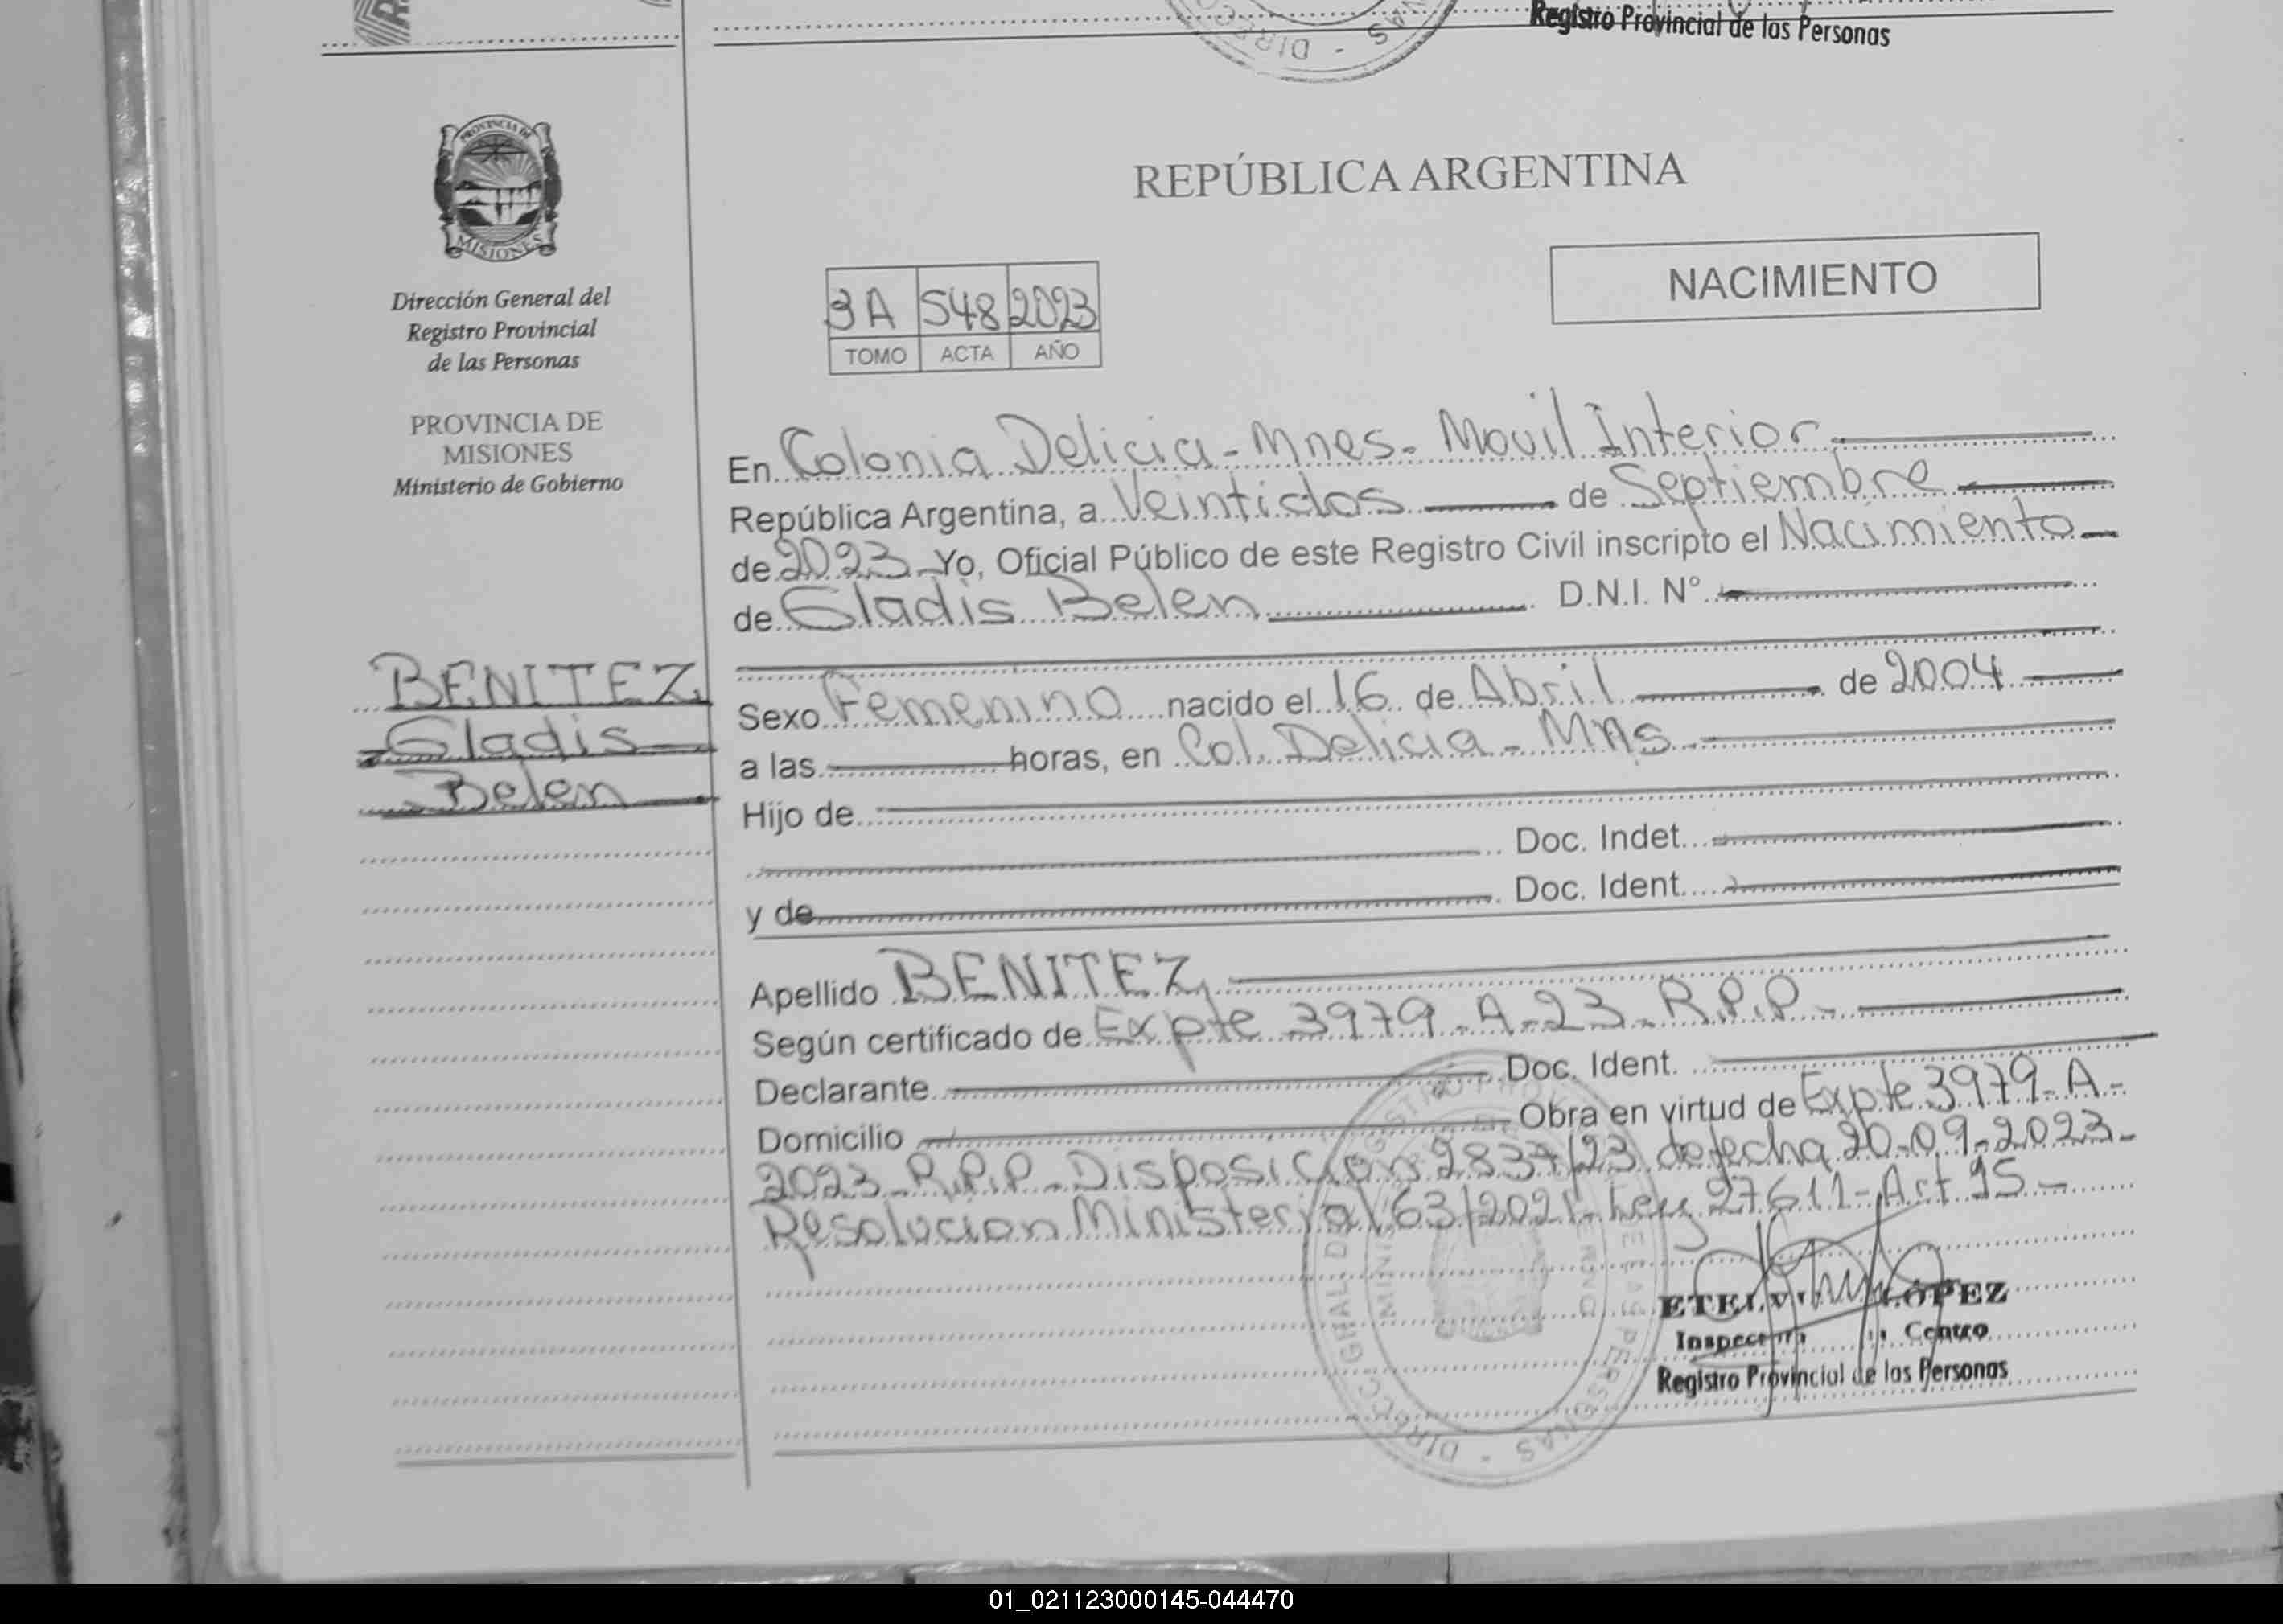 Registro Provincial de las Personas
DIREC
NAS
PROVINCIA DE
MISIONES
Dirección General del
Registro Provincial
de las Personas
PROVINCIA DE
MISIONES
Ministerio de Gobierno
BENITEZ
Gladis
Belen
REPÚBLICA ARGENTINA
NACIMIENTO
3A 548 2023
TOMO ACTA AÑO
En Colonia Delicia - Mnes - Movil Interior
República Argentina, a Veintidos de Septiembre
de 2023 Yo, Oficial Público de este Registro Civil inscripto el Nacimiento
de Gladis Belen D.N.I. N°
Sexo Femenino nacido el 16 de Abril de 2004
a las horas, en Col. Delicia - Mns
Hijo de
Doc. Indet.
y de Doc. Ident.
Apellido BENITEZ
Según certificado de Expte 3979-A-23-R.P.P-
Declarante Doc. Ident.
Domicilio Obra en virtud de Expte 3979-A-
2023-R.P.P-Disposicion 2837/23 de fecha 20-09-2023-
Resolucion Ministerial 63/2021-Ley 27611-Art 15-
LÓPEZ
Centro
Registro Provincial de las Personas
DIRECC. GRAL. DE
PERSONAS
01_021123000145-044470